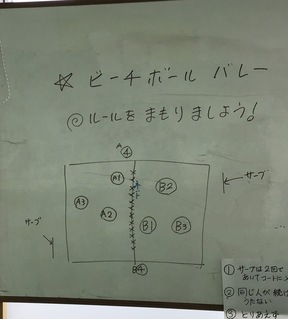 ☆ ビーチボール バレー
◎ルールを まもりましょう!
A
④
A1
B2
A3
A2
B1
B3
B4
サーブ
サーブ
① サーブは2回で
② 同じ人が続け
うたない
③ とりあえず